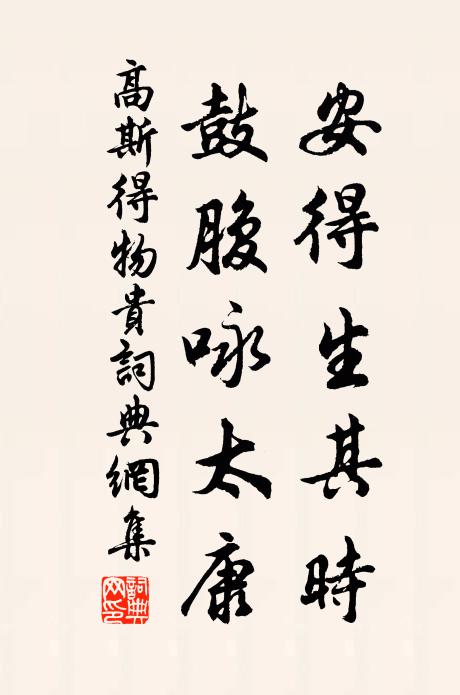 安得生其時
鼓腹咏太康
高斯得物貴詞典網集
詞典网印